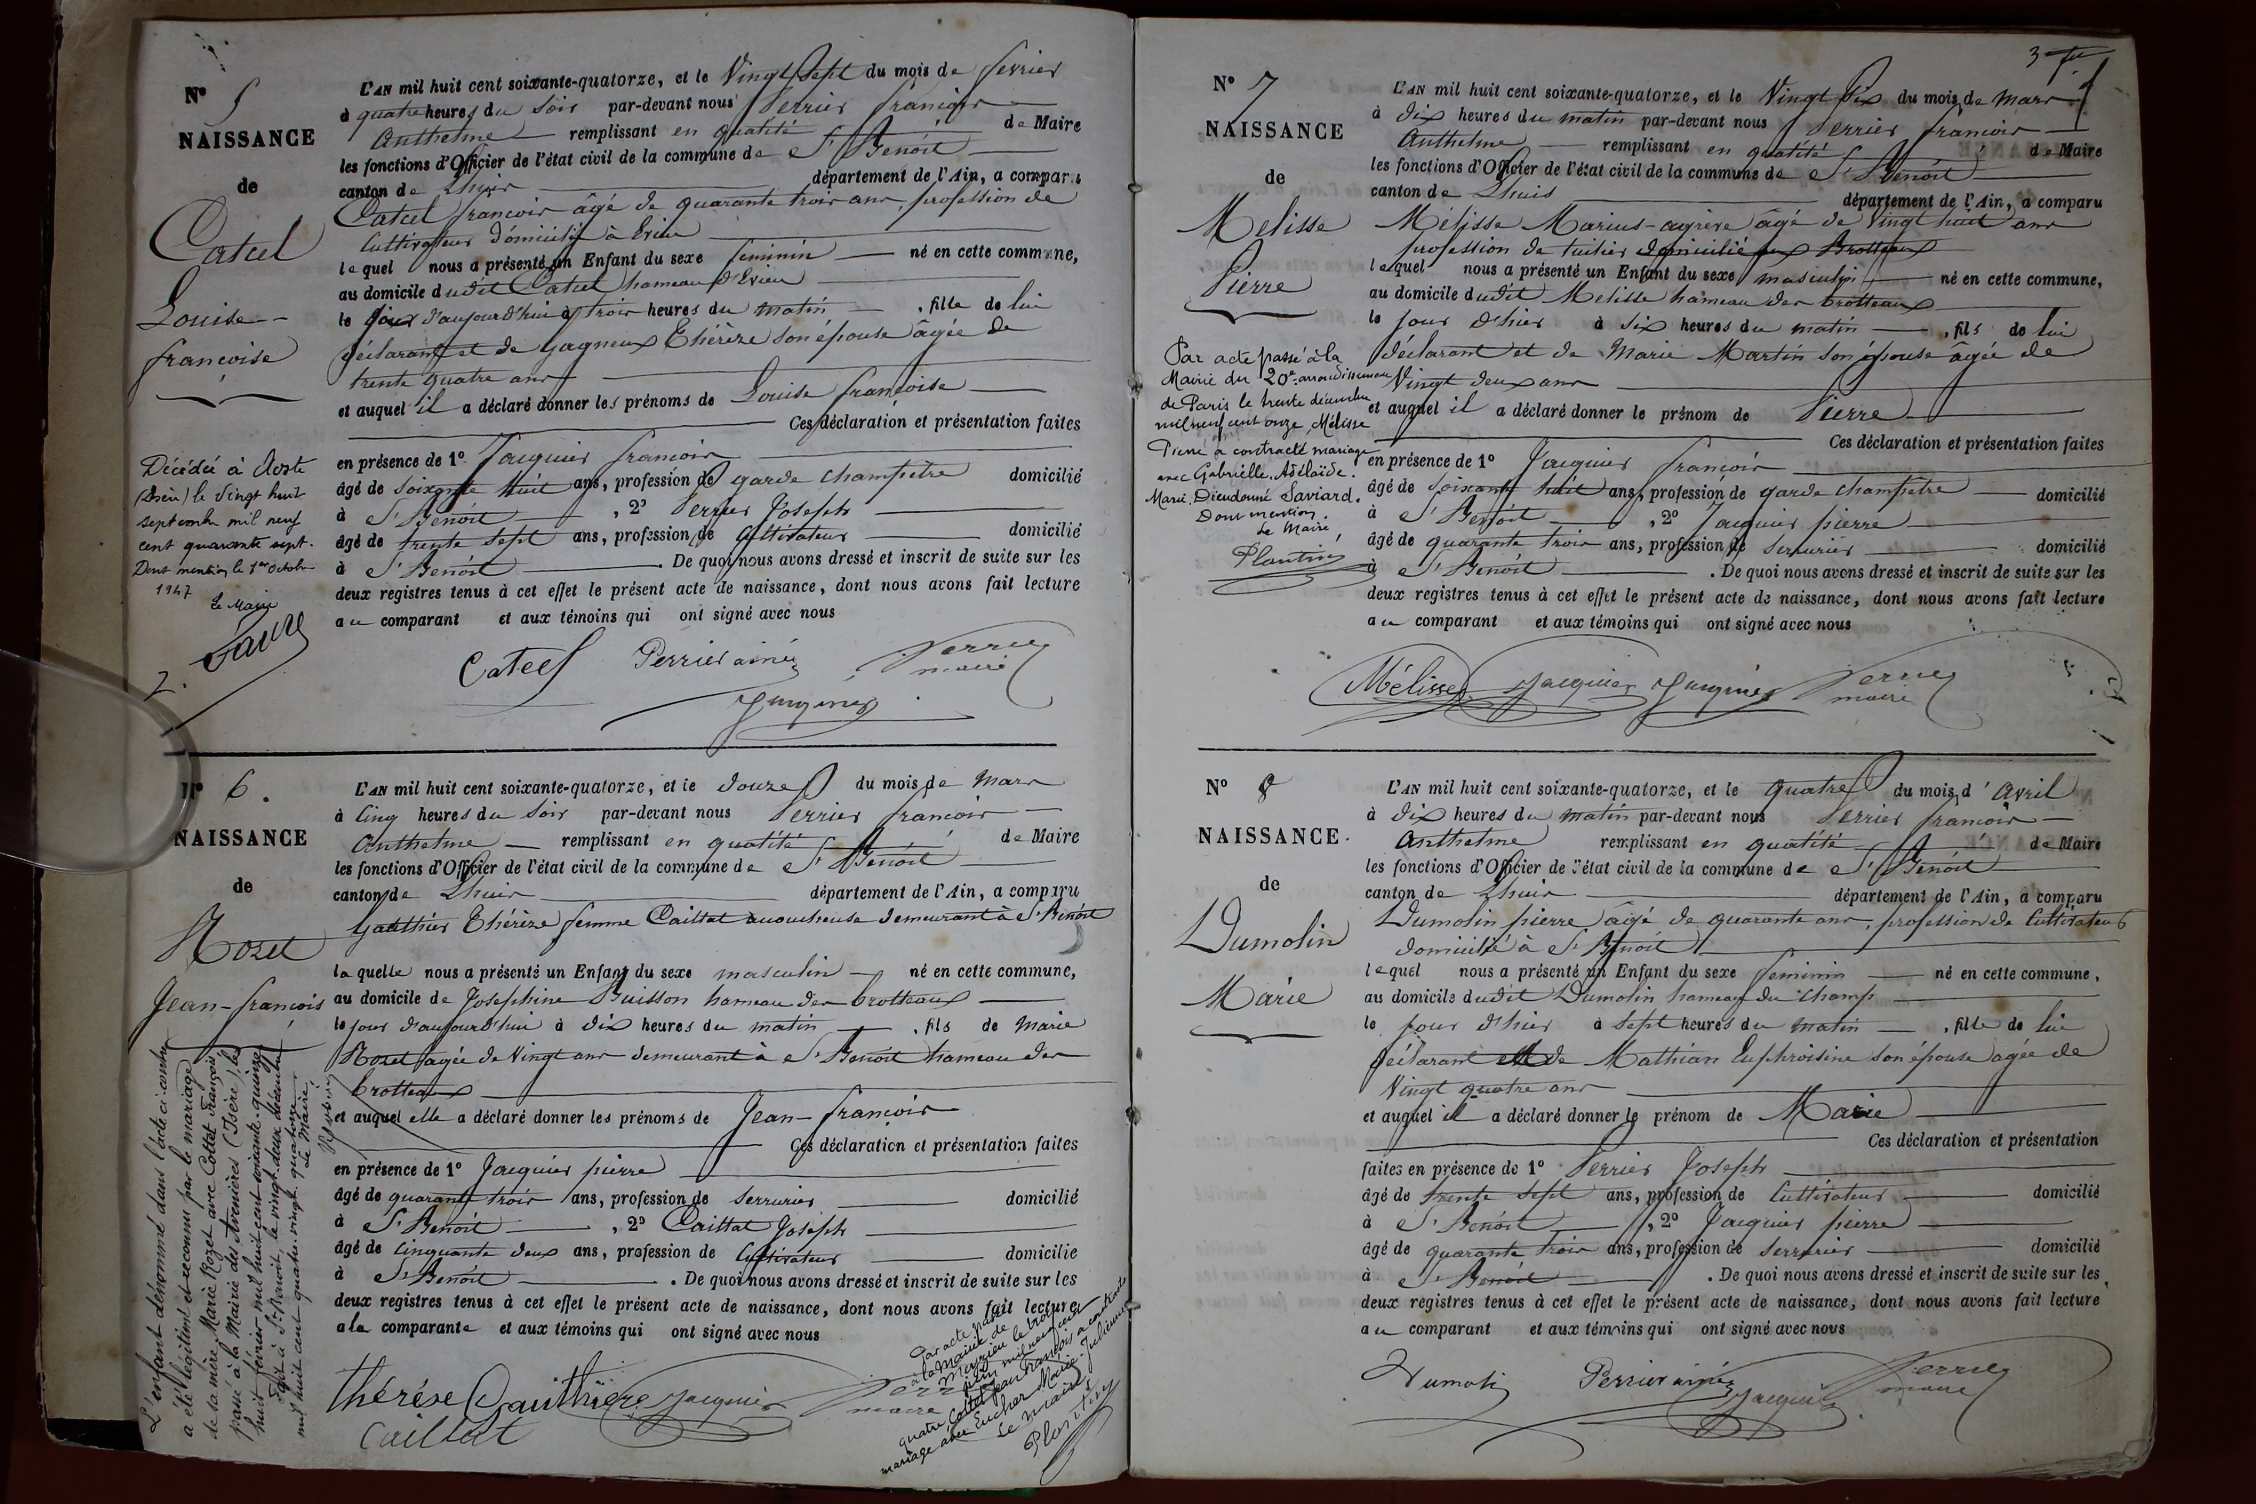 N° 5
NAISSANCE
de
Catcel
Louise
françoise
Décédée à Aoste
(Isère) le vingt huit
septembre mil neuf
cent quarante sept.
Dont mention le 1er Octobre
1947
Le Maire
Favre
L'AN mil huit cent soixante-quatorze, et le Vingt Sept du mois de fevrier
à quatre heures du Soir par-devant nous Perrier françois
Anthelme remplissant en qualité de Maire
les fonctions d'Officier de l'état civil de la commune de St Benoit
canton de Lhuis département de l'Ain, a comparu
Catcel françois âgé de quarante trois ans, profession de
Cultivateur domicilié à Evieu
lequel nous a présenté un Enfant du sexe feminin né en cette commune,
au domicile dudit Catcel hameau d'Evieu
le jour d'aujourd'hui à trois heures du matin , fille de lui
déclarant et de Gagneux Thérèse son épouse âgée de
trente quatre ans
et auquel il a déclaré donner les prénoms de Louise françoise
Ces déclaration et présentation faites
en présence de 1° Jacquier françois
âgé de soixante huit ans, profession de garde champetre domicilié
à St Benoit , 2° Perrier Joseph
âgé de trente sept ans, profession de Cultivateur domicilié
à St Benoit . De quoi nous avons dressé et inscrit de suite sur les
deux registres tenus à cet effet le présent acte de naissance, dont nous avons fait lecture
au comparant et aux témoins qui ont signé avec nous
Catcel Perrier ainé Perrier
maire
Jacquier
N° 6.
NAISSANCE
de
Rozet
Jean-françois
L'enfant dénommé dans l'acte ci-contre
a été légitimé et reconnu par le mariage
de sa mère Marie Rozet avec Cottet François
passé à la Mairie des Avenières (Isère) le
huit février mil huit cent soixante quinze
Fait à St Benoit, le vingt deux décembre
mil huit cent quatre vingt quatorze
Le Maire,
L'AN mil huit cent soixante-quatorze, et le douze du mois de Mars
à Cinq heures du Soir par-devant nous Perrier françois
Anthelme remplissant en qualité de Maire
les fonctions d'Officier de l'état civil de la commune de St Benoit
canton de Lhuis département de l'Ain, a comparu
Gauthier Thérèse femme Caillat accoucheuse demeurant à St Benoit
laquelle nous a présenté un Enfant du sexe masculin né en cette commune,
au domicile de Josephine Buisson hameau des brotteaux
le jour d'aujourd'hui à dix heures du matin , fils de Marie
Rozet âgée de Vingt ans demeurant à St Benoit hameau des
brotteaux
et auquel elle a déclaré donner les prénoms de Jean-françois
Ces déclaration et présentation faites
en présence de 1° Jacquier pierre
âgé de quarante trois ans, profession de serrurier domicilié
à St Benoit , 2° Caillat Joseph
âgé de cinquante deux ans, profession de Cultivateur domicilié
à St Benoit . De quoi nous avons dressé et inscrit de suite sur les
deux registres tenus à cet effet le présent acte de naissance, dont nous avons fait lecture
a la comparante et aux témoins qui ont signé avec nous
thérése Gauthière Jacquier Perrier
Caillat maire
Par acte passé
à la Mairie de
le trois
juin mil neuf cent
quatre Cottet Jean François a contracté
mariage avec Eucher Marie Julienne
Le Maire
Plantin
3
N° 7
NAISSANCE
de
Melisse
Pierre
Par acte passé à la
Mairie du 20e arrondissement
de Paris le trente décembre
mil neuf cent onze, Mélisse
Pierre a contracté mariage
avec Gabrielle, Adélaïde.
Marie, Dieudonné Saviard.
Dont mention.
Le Maire,
Plantin
L'AN mil huit cent soixante-quatorze, et le Vingt Six du mois de Mars
à dix heures du matin par-devant nous Perrier françois
Anthelme remplissant en qualité de Maire
les fonctions d'Officier de l'état civil de la commune de St Benoit
canton de Lhuis département de l'Ain, a comparu
Mélisse Marius-agrève âgé de Vingt huit ans
profession de tuilier domicilié aux Brotteaux
lequel nous a présenté un Enfant du sexe masculin né en cette commune,
au domicile dudit Melisse hameau des brotteaux
le jour d'hier à six heures du matin , fils de lui
déclarant et de Marie Martin son épouse âgée de
Vingt deux ans
et auquel il a déclaré donner le prénom de Pierre
Ces déclaration et présentation faites
en présence de 1° Jacquier françois
âgé de soixante huit ans, profession de garde champetre domicilié
à St Benoit , 2° Jacquier pierre
âgé de quarante trois ans, profession de serrurier domicilié
à St Benoit . De quoi nous avons dressé et inscrit de suite sur les
deux registres tenus à cet effet le présent acte de naissance, dont nous avons fait lecture
au comparant et aux témoins qui ont signé avec nous
Mélisse Jacquier Jacquier Perrier
maire
N° 8
NAISSANCE
de
Dumolin
Marie
L'AN mil huit cent soixante-quatorze, et le quatre du mois d'Avril
à dix heures du matin par-devant nous Perrier françois
Anthelme remplissant en qualité de Maire
les fonctions d'Officier de l'état civil de la commune de St Benoit
canton de Lhuis département de l'Ain, a comparu
Dumolin pierre âgé de quarante ans, profession de Cultivateur
domicilié à St Benoit
lequel nous a présenté un Enfant du sexe feminin né en cette commune,
au domicile dudit Dumolin hameau du Champ
le jour d'hier à sept heures du matin , fille de lui
déclarant et de Mathian Euphroisine son épouse âgée de
Vingt quatre ans
et auquel il a déclaré donner le prénom de Marie
Ces déclaration et présentation
faites en présence de 1° Perrier Joseph
âgé de trente sept ans, profession de Cultivateur domicilié
à St Benoit , 2° Jacquier pierre
âgé de quarante trois ans, profession de serrurier domicilié
à St Benoit . De quoi nous avons dressé et inscrit de suite sur les
deux registres tenus à cet effet le présent acte de naissance, dont nous avons fait lecture
au comparant et aux témoins qui ont signé avec nous
Dumoli Perrier ainé Jacquier Perrier
maire